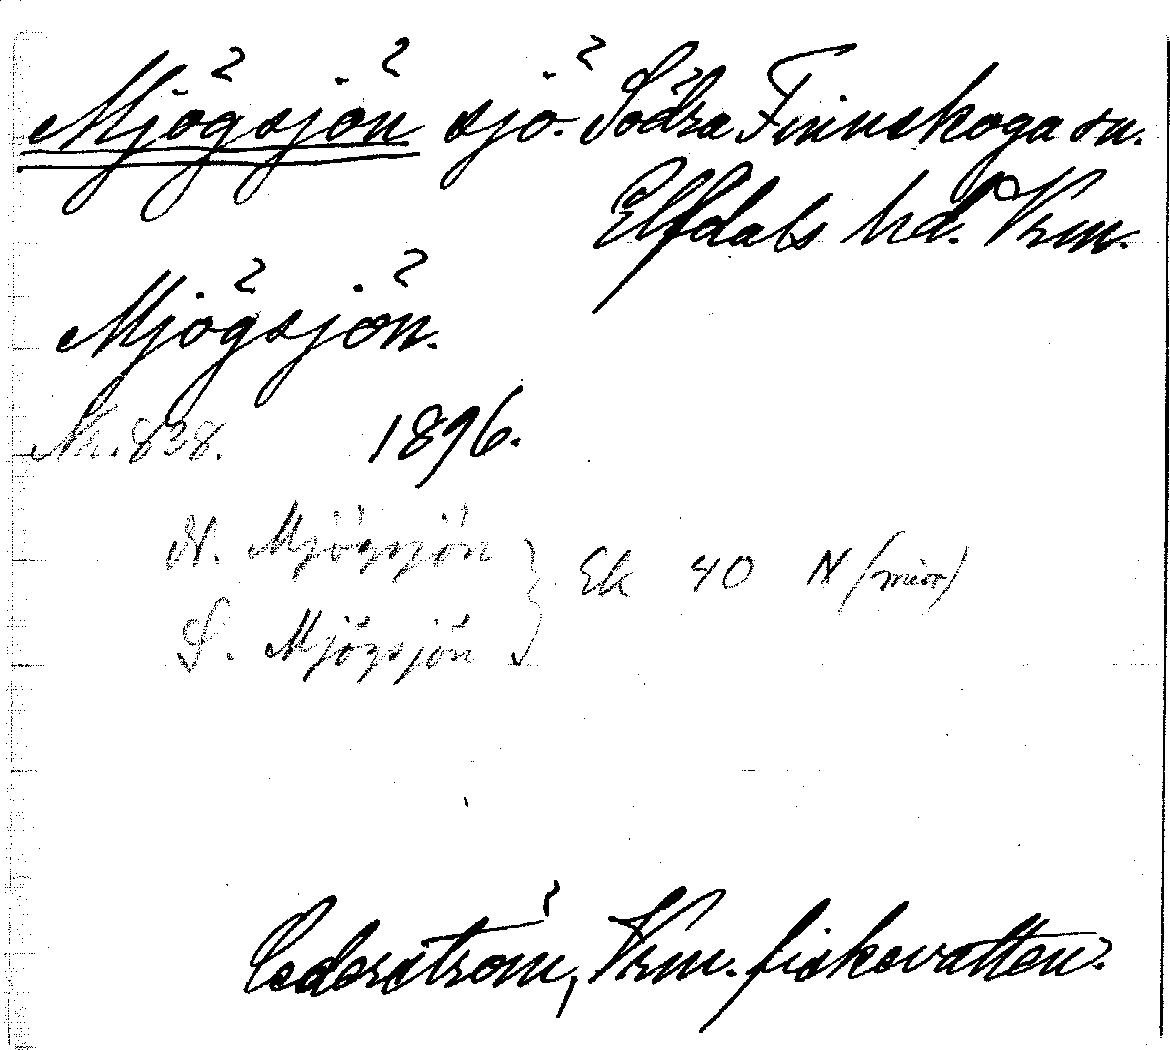 Mjögsjön sjö. Södra Finnskoga sn.
Elfdals hd. Vrm.
Mjögsjön.
Nr. 838. 1896.
N. Mjögsjön } Ek 40 N (mitt)
S. Mjögsjön
Cederström, Vrm. fiskevatten.